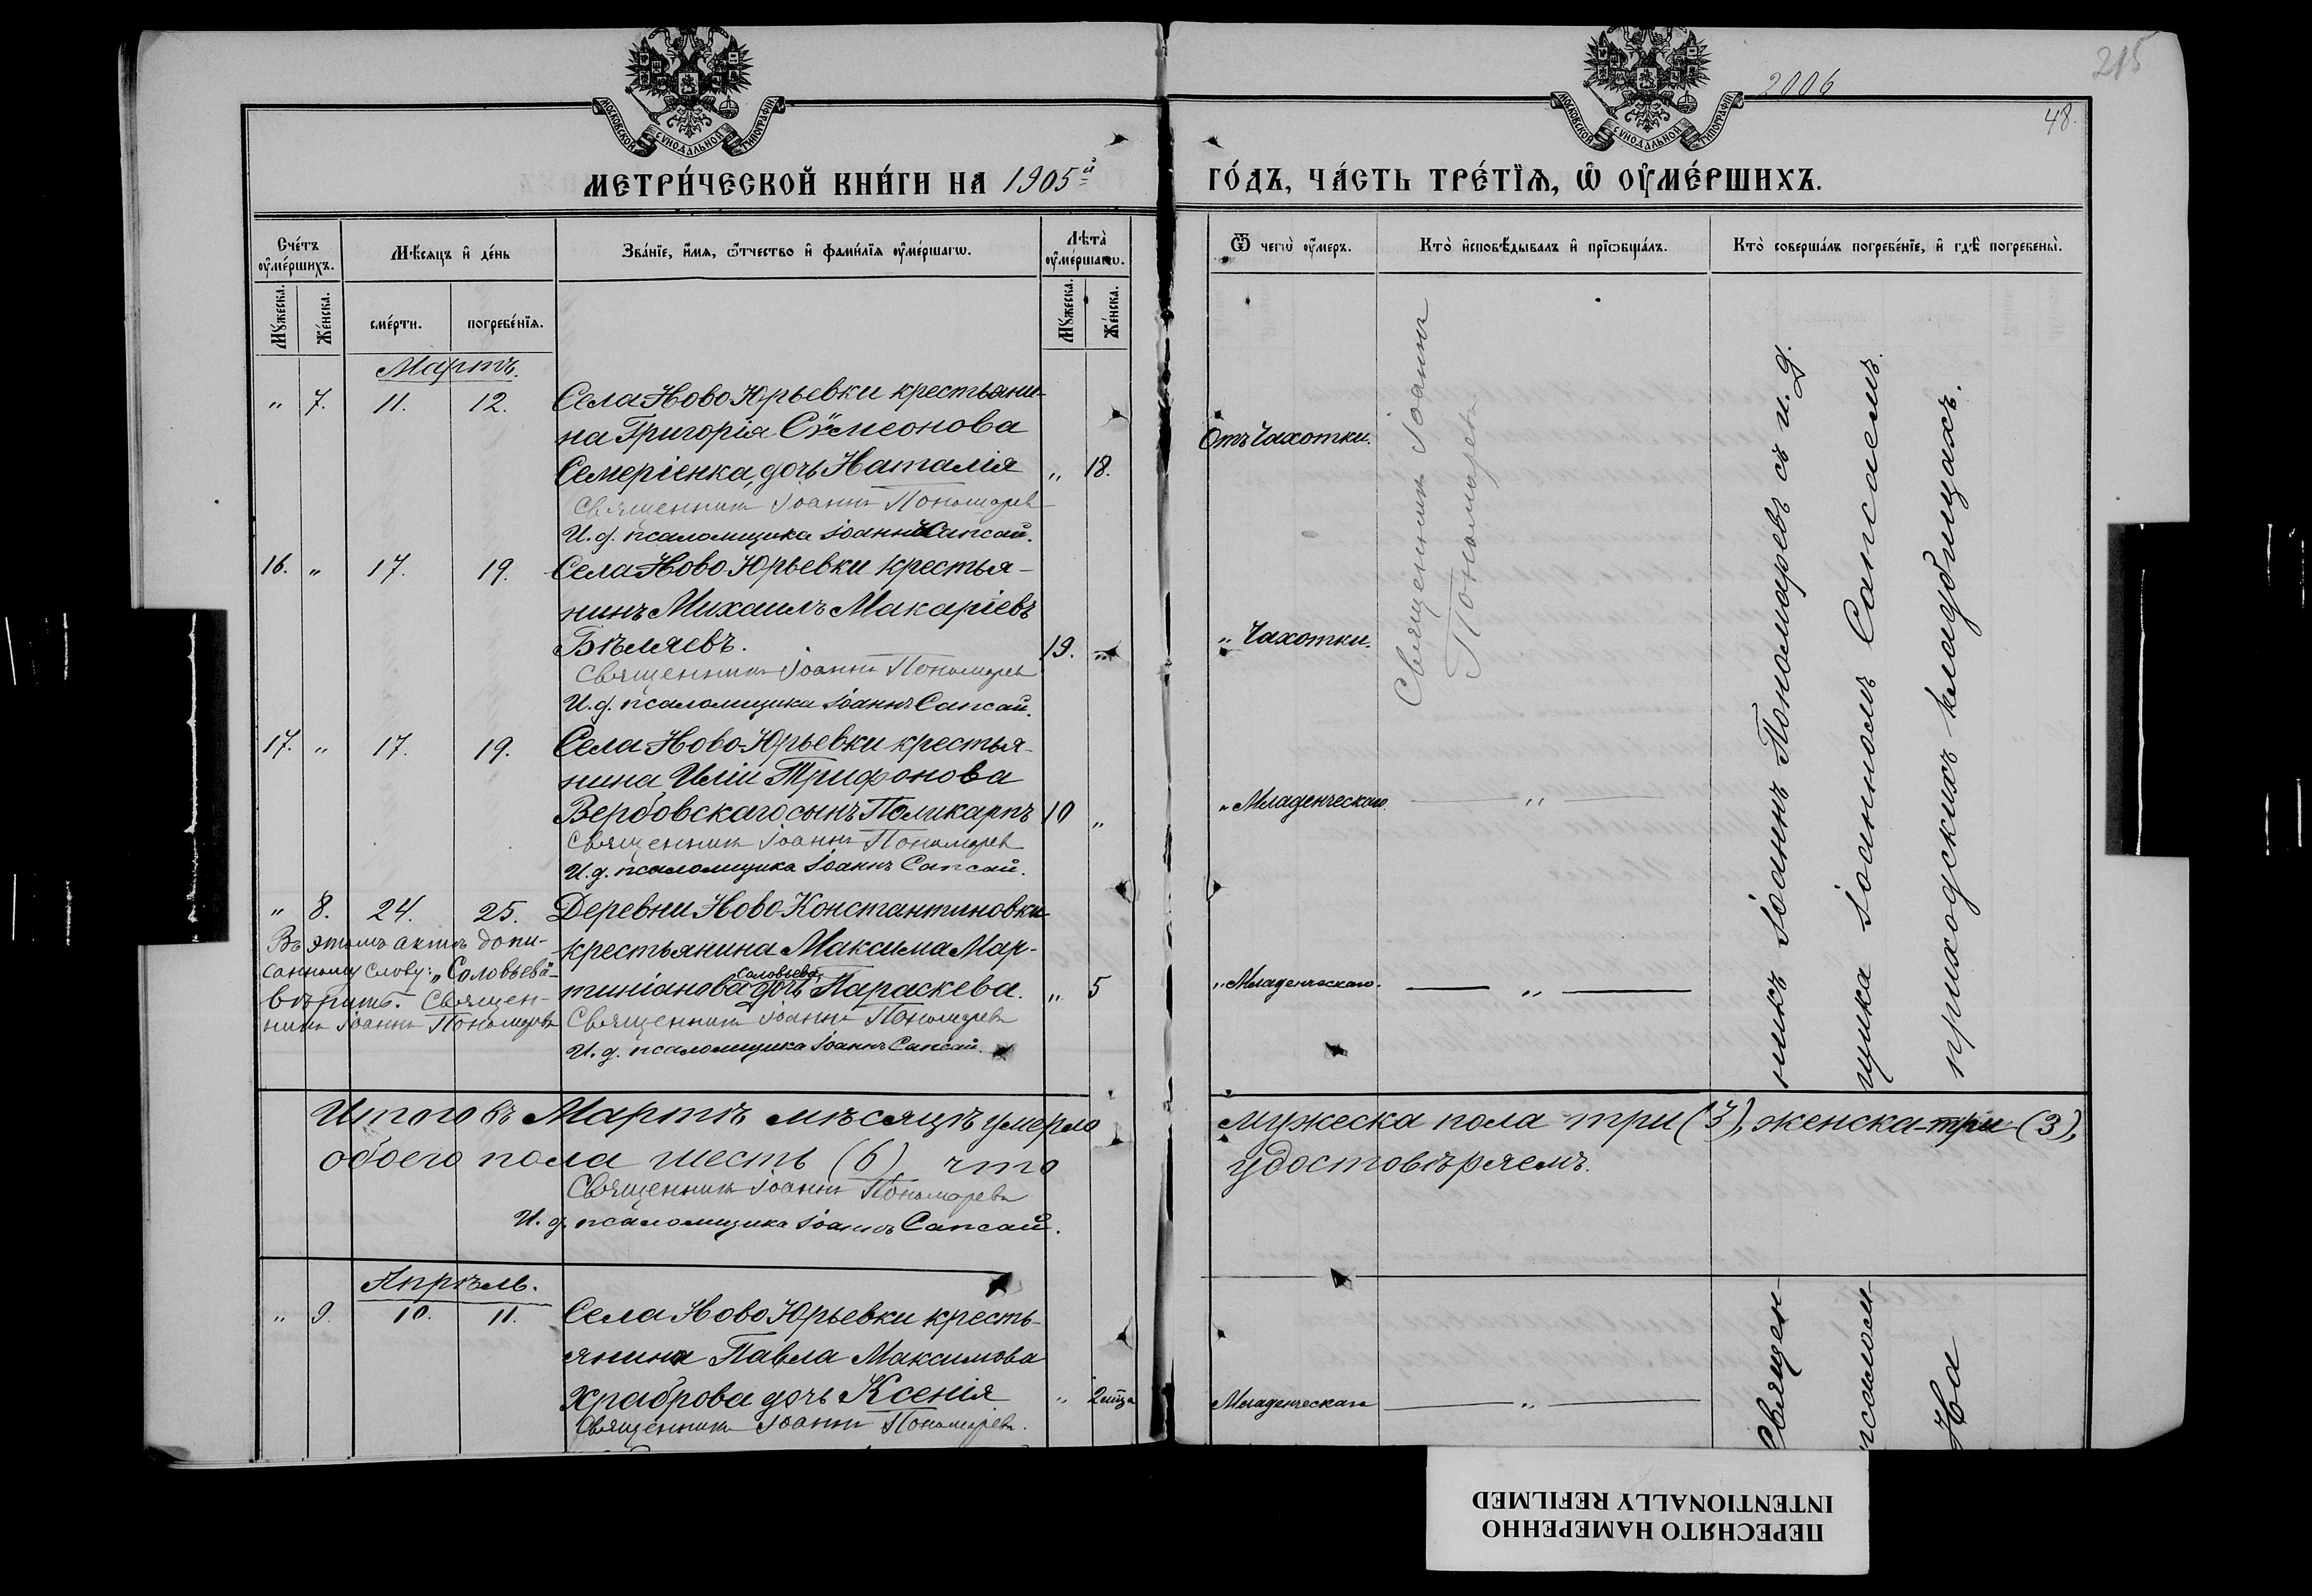 МОСКОВСКОЙ СУНОДАЛЬНОЙ ТИПОГРАФІИ
МЕТРИ́ЧЕСКОЙ КНИ́ГИ НА 1905й
Сче́тъ оу҆ме́ршихъ.
Мѣ́сяцъ и҆ де́нь
Зва́нїе, и҆́мѧ, ѻ҆́тчество и҆ фами́лїѧ оу҆ме́ршагѡ.
Лѣта̀ оу҆ме́ршагѡ.
Мꙋ́жеска.
Же́нска.
сме́рти.
погребе́нїѧ.
Мꙋ́жеска.
Же́нска.
Мартъ.
" 7. 11. 12. Села Ново Юрьевки крестьяни-
на Григорія Сѵмеонова
Семеріенка, дочь Наталія " 18.
Священникъ Іоаннъ Пономаревъ
И. д. псаломщика Іоаннъ Сапсай.
16. " 17. 19. Села Ново-Юрьевки крестья-
нинъ Михаилъ Макаріевъ
Бѣляевъ. 19. "
Священникъ Іоаннъ Пономаревъ
И. д. псаломщика Іоаннъ Сапсай.
17. " 17. 19. Села Ново-Юрьевки крестья-
нина Иліи Трифонова
Вербовскаго сынъ Поликарпъ 10 "
Священникъ Іоаннъ Пономаревъ
И. д. псаломщика Іоаннъ Сапсай.
" 8. 24. 25. Деревни Ново-Константиновки
крестьянина Максима Мар-
Соловьева,
тиніанова дочь Параскева. " 5
Священникъ Іоаннъ Пономаревъ
И. д. псаломщика Іоаннъ Сапсай.
Въ этомъ актѣ допи-
санному слову: „Соловьева"-
вѣрить. Священ-
никъ Іоаннъ Пономаревъ
Итого въ Мартѣ мѣсяцѣ умерло
обоего пола шесть (6), что
Священникъ Іоаннъ Пономаревъ
И. д. псаломщика Іоаннъ Сапсай.
Апрѣль.
" 9. 10. 11. Села Ново Юрьевки кресть-
янина Павла Максимова
Храброва дочь Ксенія " 2 мца
Священникъ Іоаннъ Пономаревъ.
215
2006
48.
МОСКОВСКОЙ СУНОДАЛЬНОЙ ТИПОГРАФІИ
ГО́ДЪ, ЧА́СТЬ ТРЕ́ТЇѦ, Ѡ҆ ОУ҆МЕ́РШИХЪ.
Ѿ чегѡ̀ оу҆́меръ.
Кто̀ и҆сповѣ́дывалъ и҆ прїѡбща́лъ.
Кто̀ соверша́лъ погребе́нїе, и҆ гдѣ̀ погребены̀.
Отъ Чахотки.
" Чахотки.
" Младенческаго. — " —
" Младенческаго. — " —
Священникъ Іоаннъ
Пономаревъ
никъ Іоаннъ Пономаревъ съ и. д.
щика Іоанномъ Сапсаемъ.
приходскихъ кладбищахъ.
мужеска пола три (3), женска-три (3),
удостовѣряемъ.
Младенческаго — " —
Священ-
псалом-
На
ПЕРЕСНЯТО НАМЕРЕННО
INTENTIONALLY REFILMED